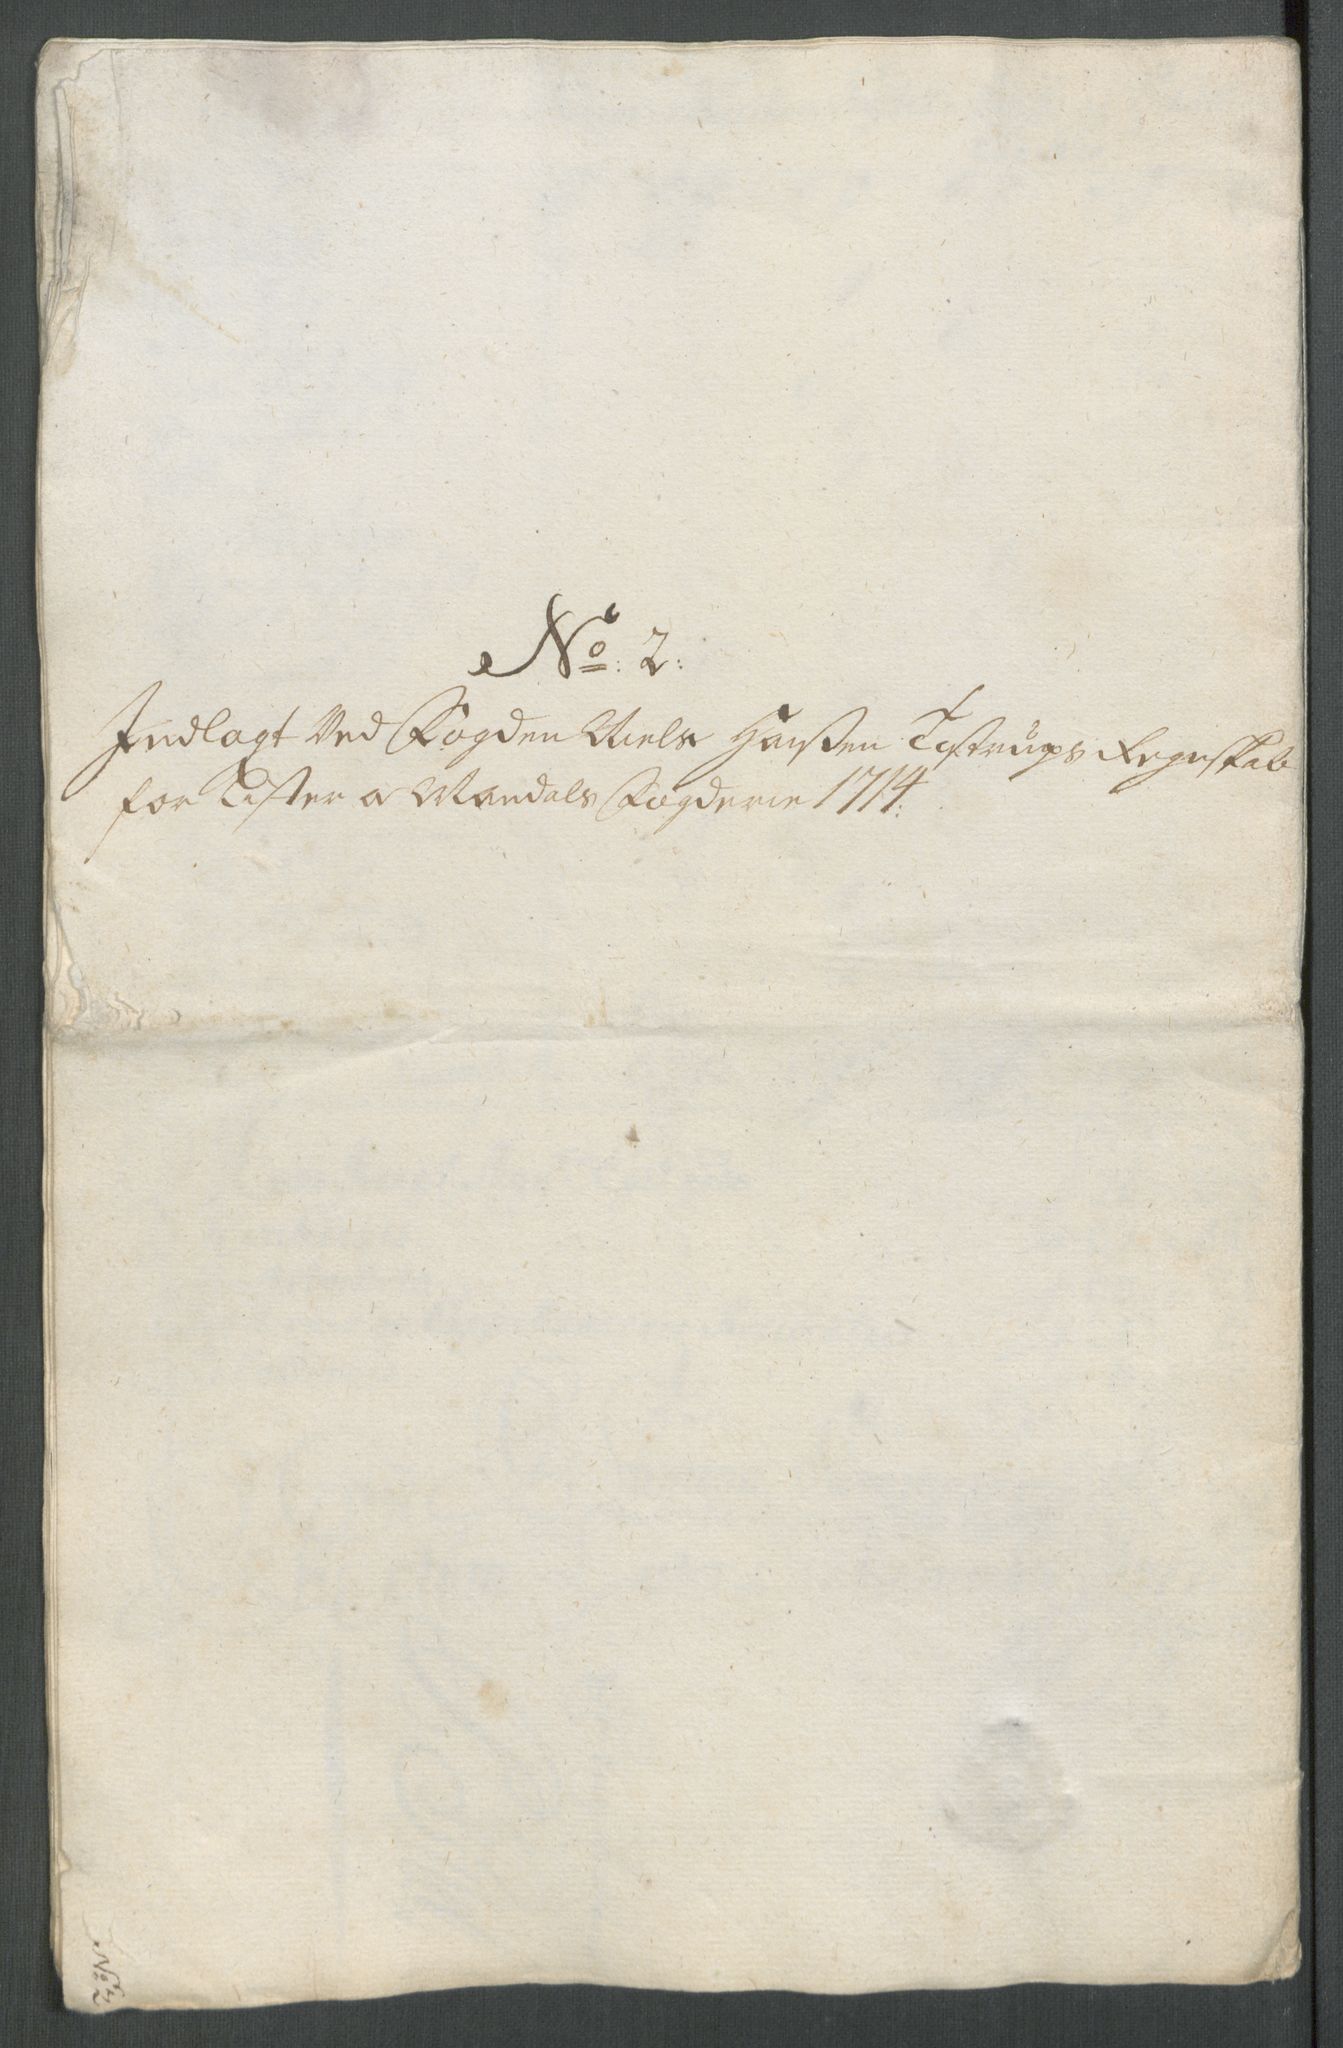 No: 2:
Indlagt Ved Fogden Niels Hansen Tostrups Regnskab
for Lister o Mandals Fogderie 1714:
No: 2